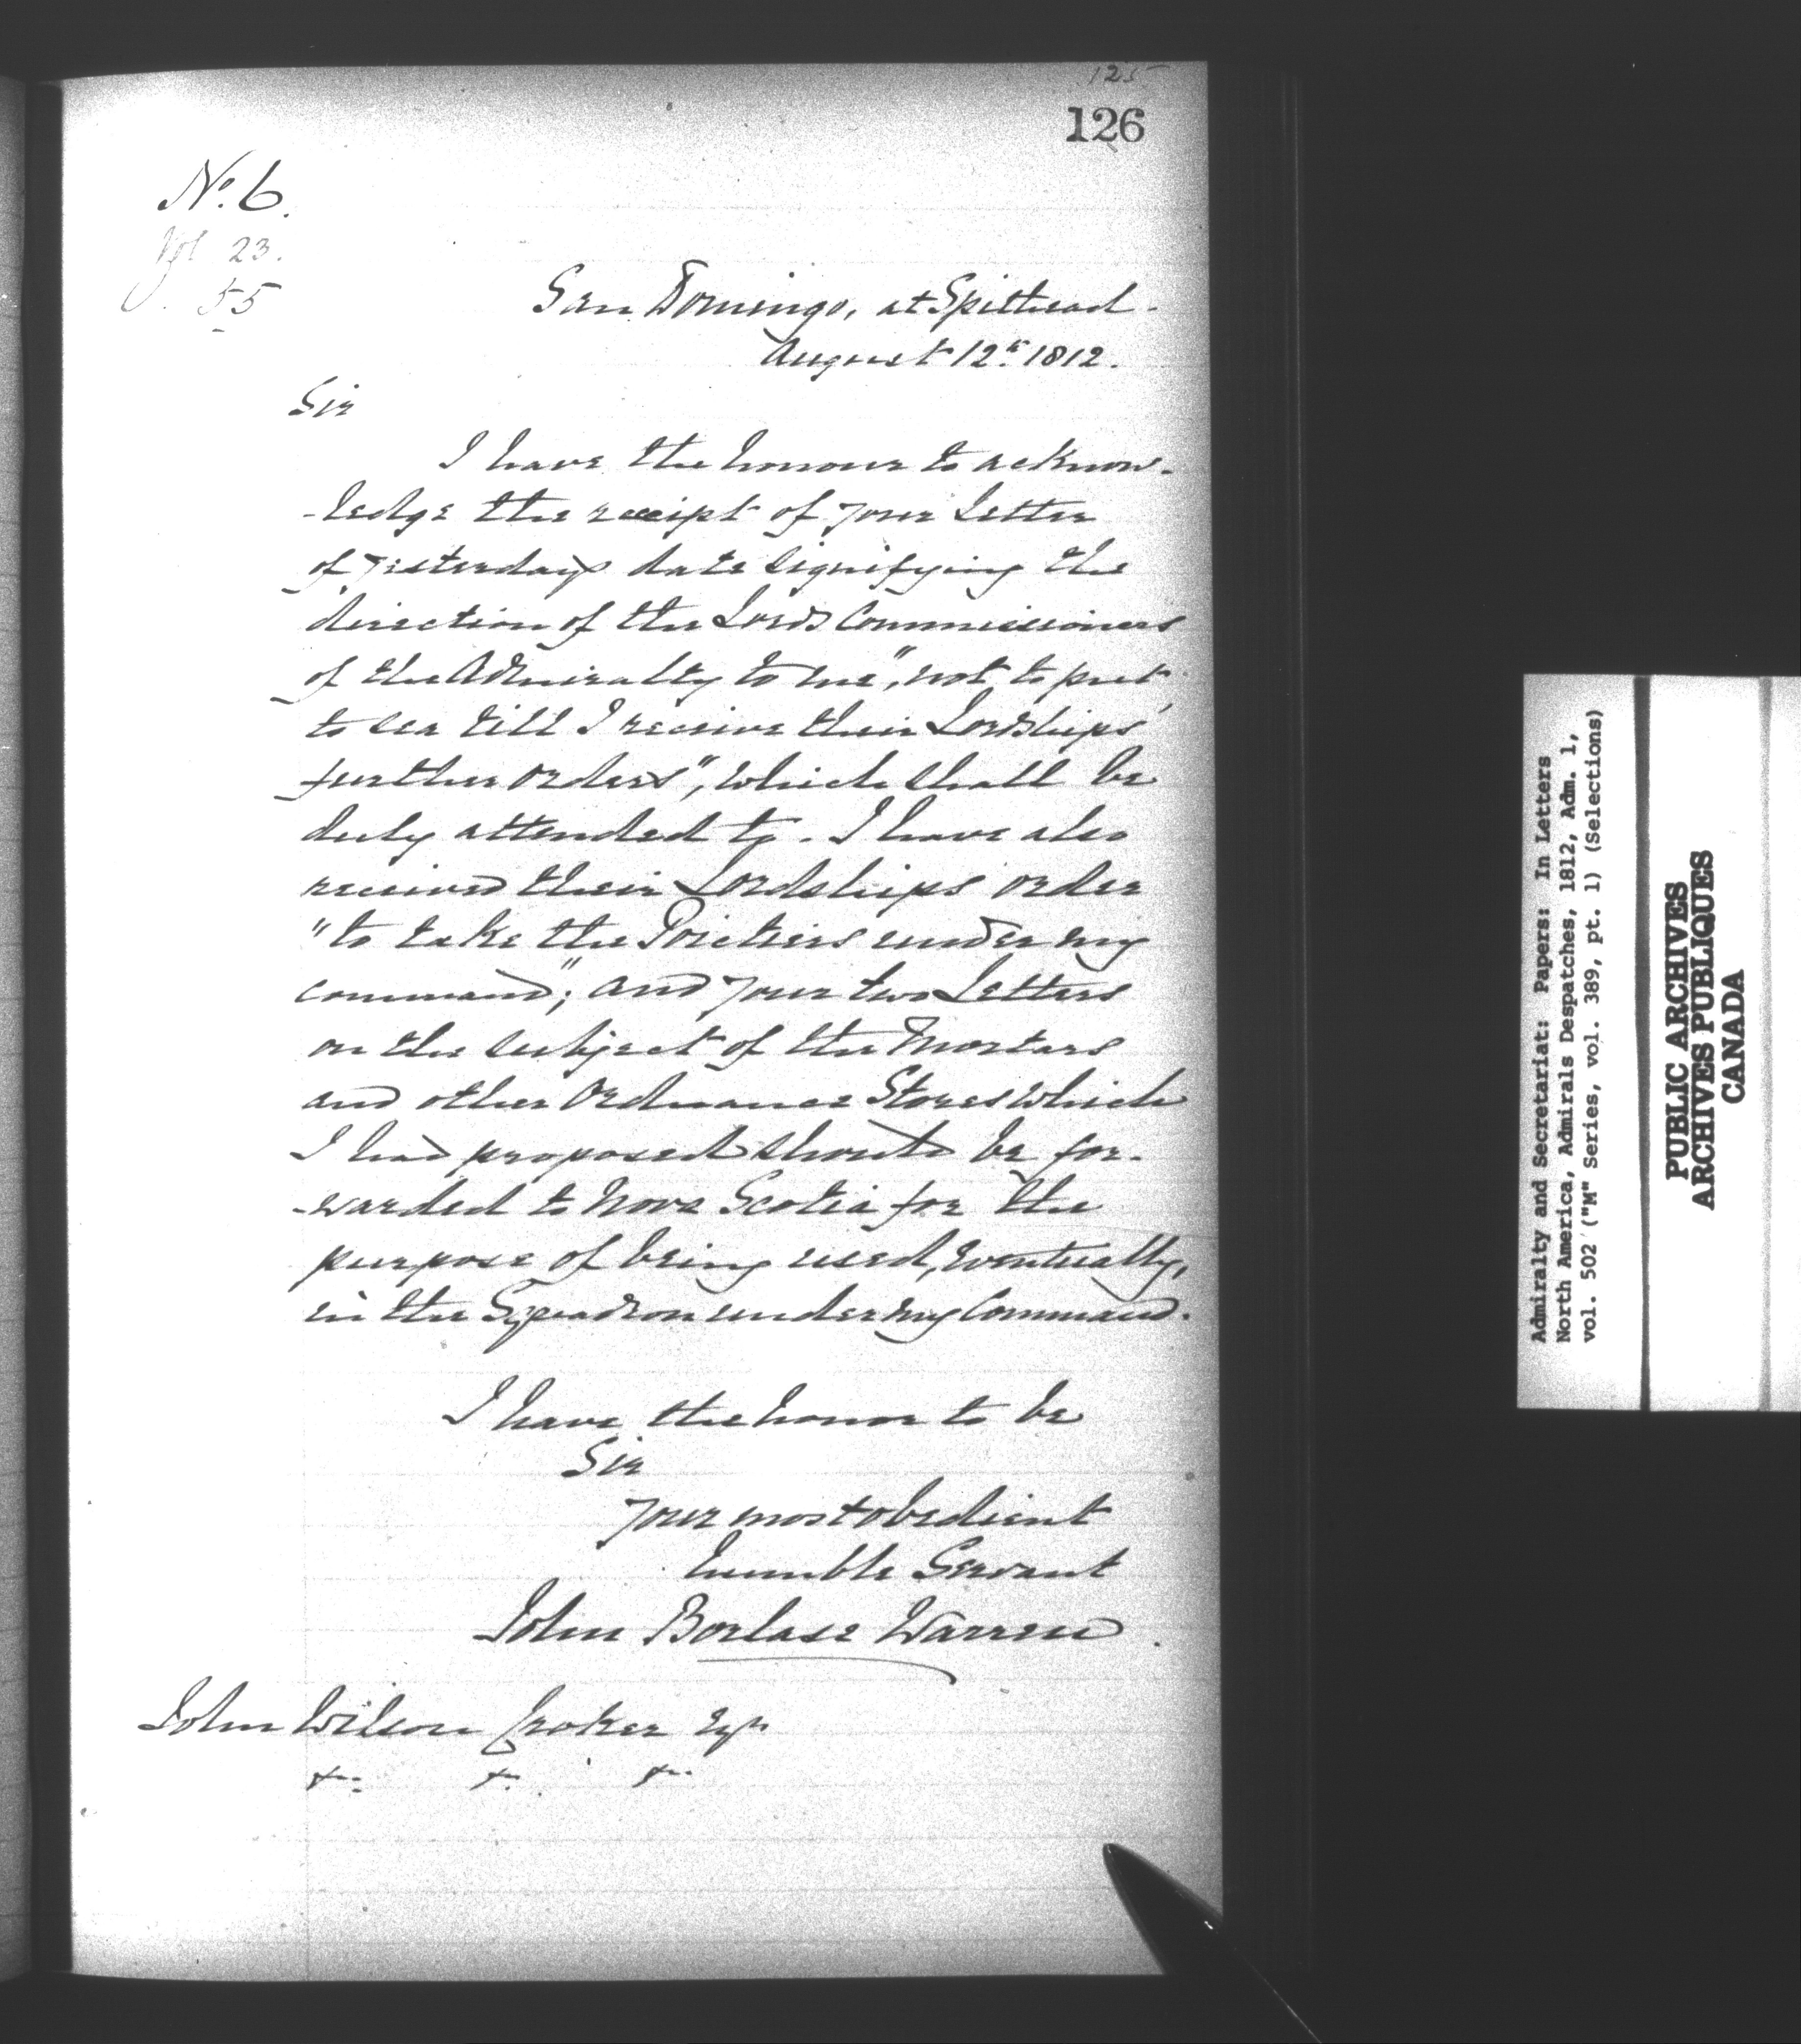 125
126
No. 6.
Vol 23.
p. 55
San Domingo, at Spithead.
August 12th 1812.
Sir
I have the honour to acknow-
-ledge the receipt of your Letter
of yesterdays date signifying the
direction of the Lords Commissioners
of the Admiralty to me, "not to put
to sea till I receive their Lordships'
further orders", which shall be
duly attended to. I have also
received their Lordships order
"to take the Poictiers under my
command"; and your two Letters
on the subject of the Mortars
and other Ordnance Stores which
I had proposed should be for-
-warded to Nova Scotia for the
purpose of being used, eventually,
in the Squadron under my Command.
I have the honor to be
Sir
Your most obedient
humble Servant
John Borlase Warren.
John Wilson Croker Esqr
&c. &c. &c.
Admiralty and Secretariat: Papers: In Letters
North America, Admirals Despatches, 1812, Adm. 1,
vol. 502 ("M" Series, vol. 389, pt. 1) (Selections)
PUBLIC ARCHIVES
ARCHIVES PUBLIQUES
CANADA